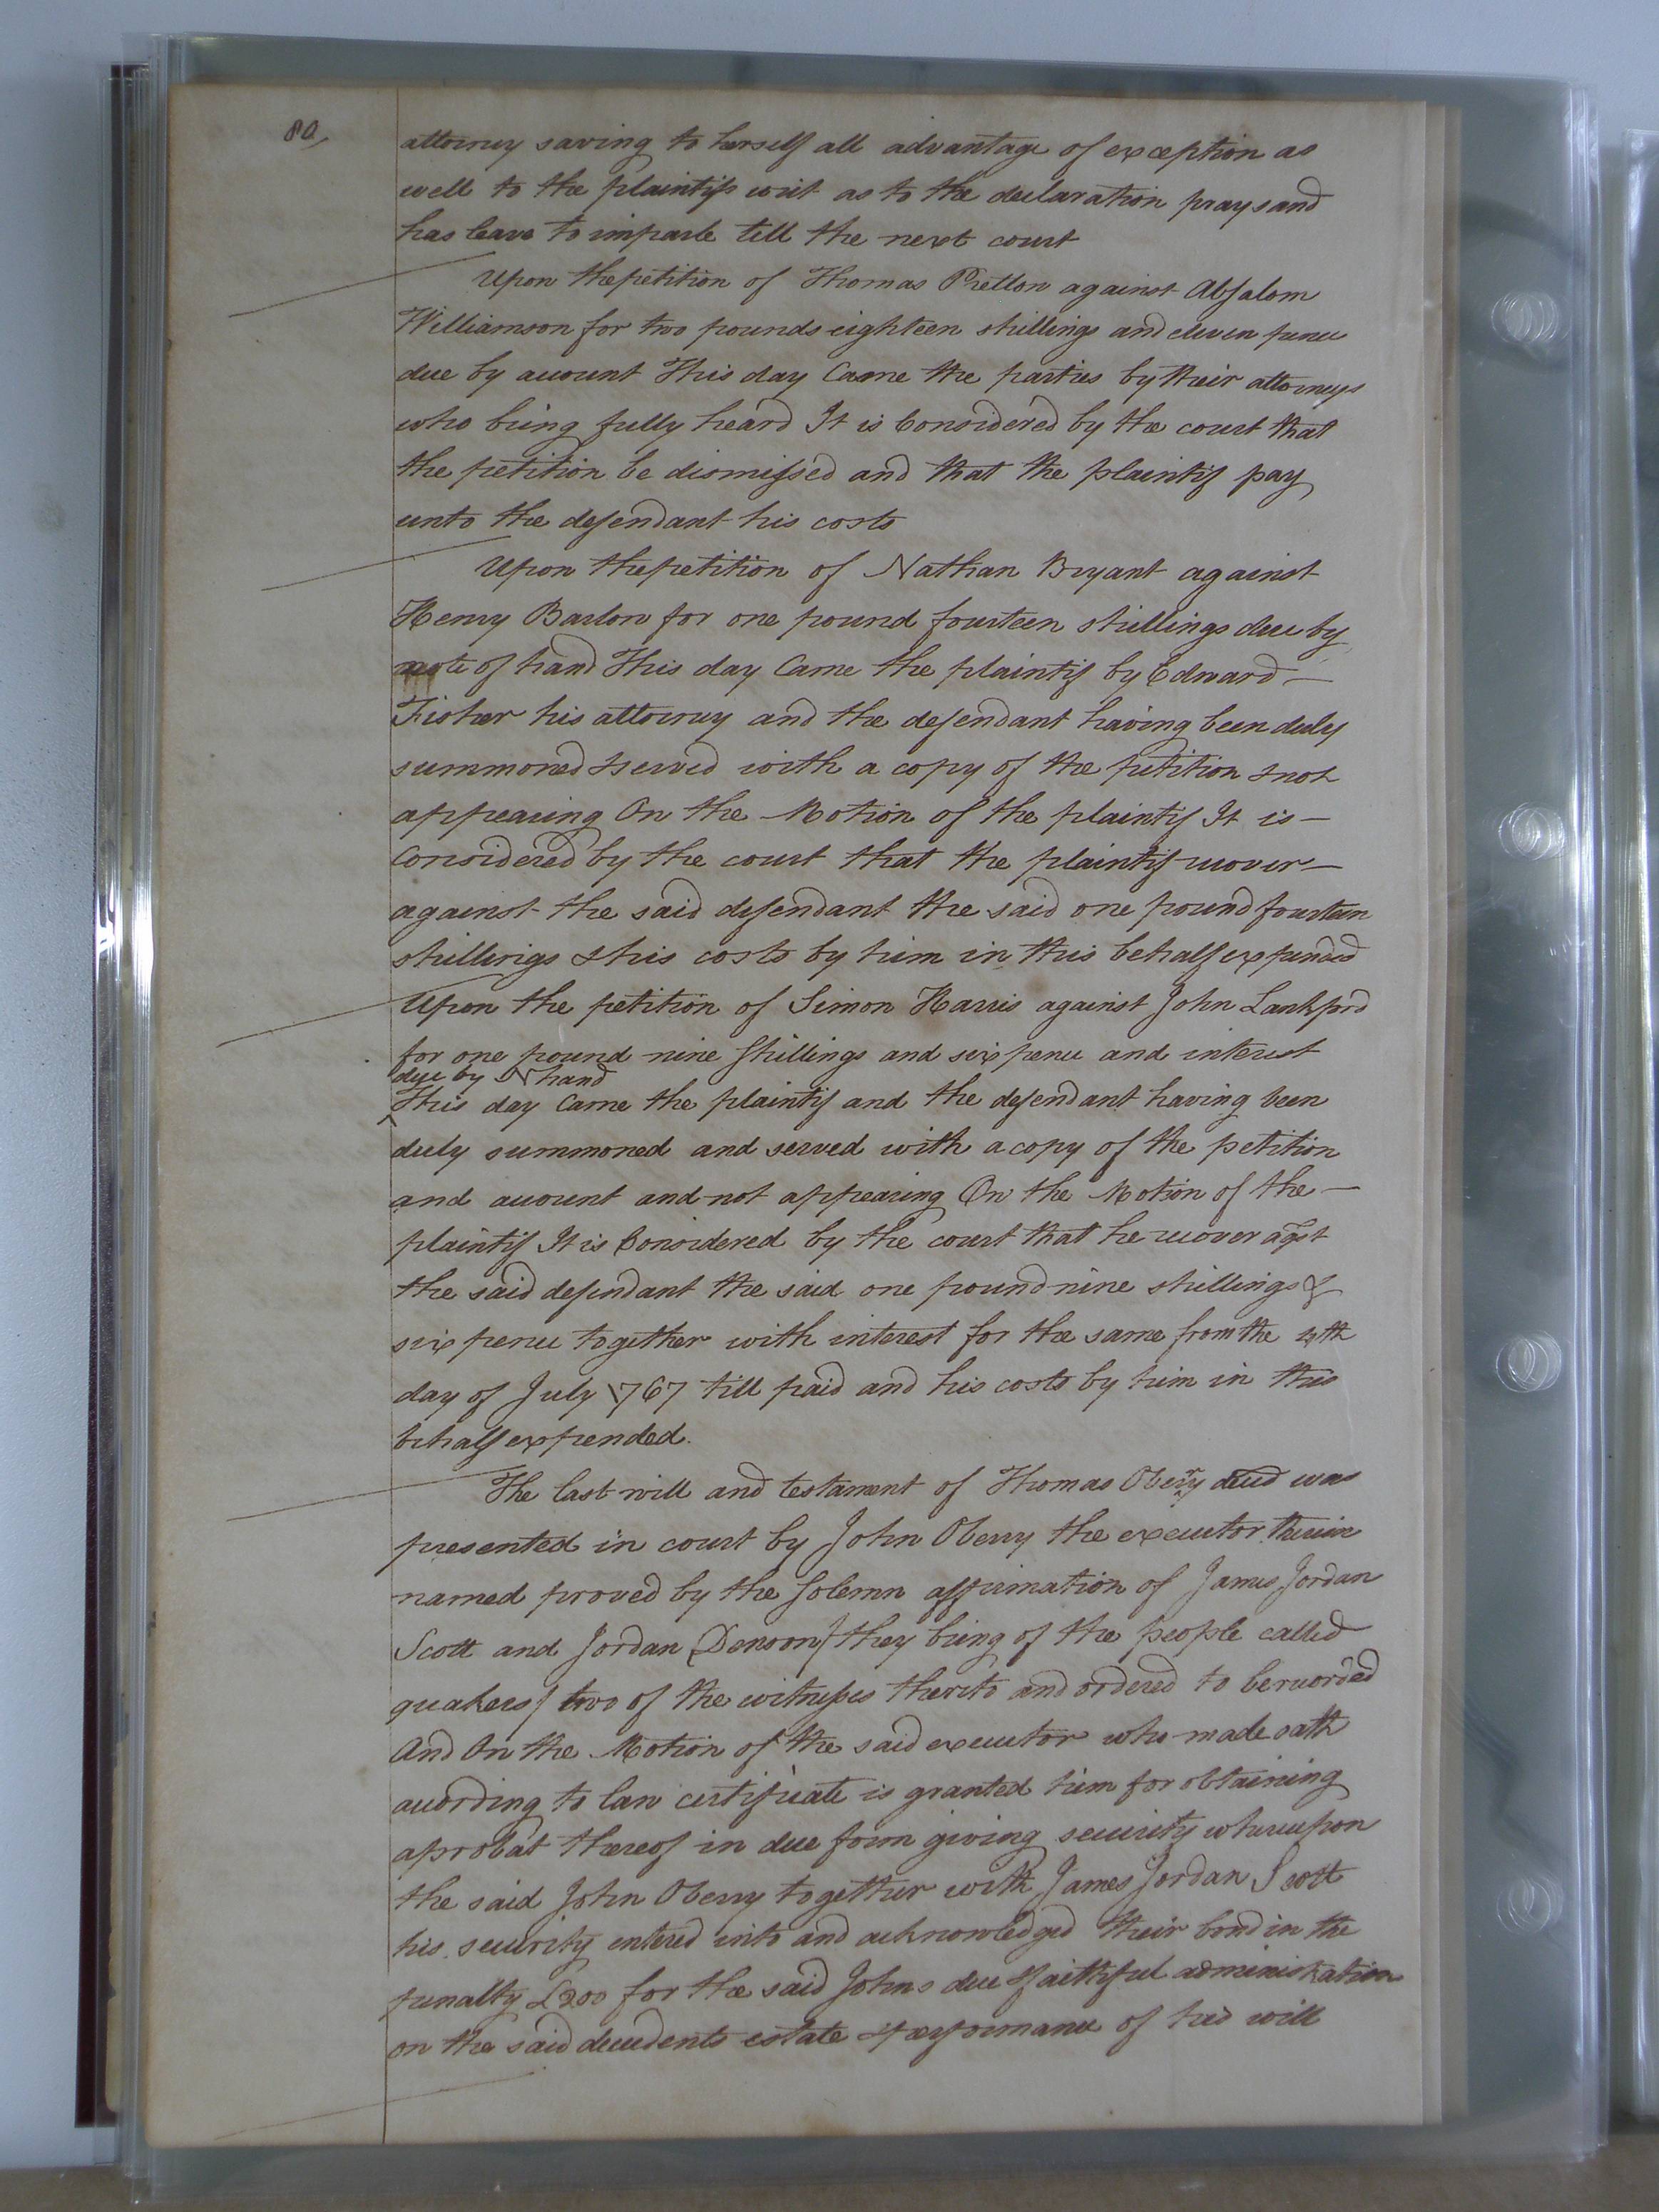 80,
attorney saving to herself all advantage of exception as
well to the plaintifs writ as to the declaration prays and
has leave to imparle till the next court
Upon the petition of Thomas Pretlow against Absalom
Williamson for two pounds eighteen shillings and eleven pence
due by account This day Came the parties by their attorneys
who being fully heard It is Considered by the court that
the petition be dismissed and that the plaintif pay
unto the defendant his costs
Upon the petition of Nathan Bryant against
Henry Barlow for one pound fourteen shillings due by
note of hand This day Came the plaintif by Edward
Fisher his attorney and the defendant having been duly
summoned & served with a copy of the petition & not
appearing On the Motion of the plaintif It is
Considered by the court that the plaintif recover
against the said defendant the said one pound fourteen
shillings & his costs by him in this behalf expended
Upon the petition of Simon Harris against John Lankford
for one pound nine shillings and six pence and interest
due by N hand
This day Came the plaintif and the defendant having been
duly summoned and served with a copy of the petition
and account and not appearing On the Motion of the
plaintif It is Considered by the court that he recover agst
the said defendant the said one pound nine shillings &
six pence together with interest for the same from the
day of July 1767 till paid and his costs by him in this
behalf expended.
The last will and testament of Thomas Oberry decd was
presented in court by John Oberry the executor therein
named proved by the solemn affirmation of James Jordan
Scott and Jordan Denson / they being of the people called
quakers / two of the witnesses thereto and ordered to be recorded
And On the Motion of the said executor who made oath
according to law certificate is granted him for obtaining
a probat thereof in due form giving security whereupon
the said John Oberry together with James Jordan Scott
his security entered into and acknowledged their bond in the
penalty £200 for the said Johns due & faithful administration
on the said decedents estate & performance of his will